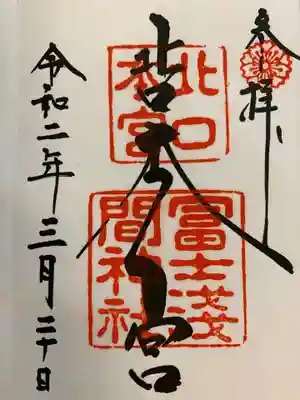 奉拝
北口本宮
北口本宮
冨士浅間神社
令和二年三月二十日